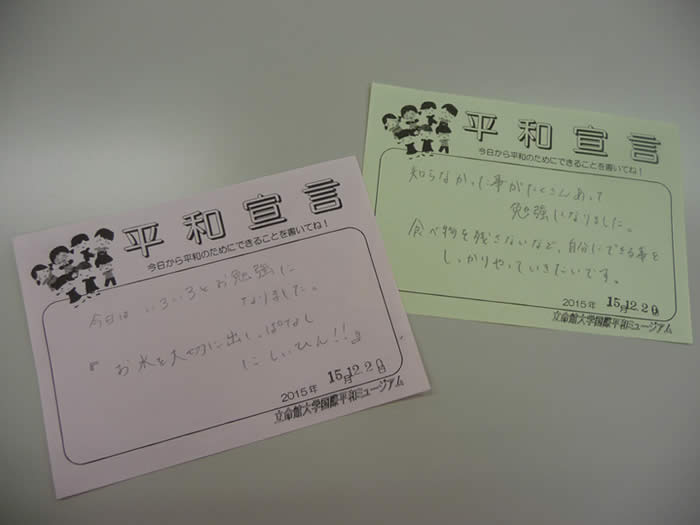 平和宣言
今日から平和のためにできることを書いてね！
今日は いろいろとお勉強に
なりました。
『お水を大切に出しっぱなし
にしいひん!!』
2015年 15月12.20日
立命館大学国際平和ミュージアム
平和宣言
今日から平和のためにできることを書いてね！
知らなかった事がたくさんあって
勉強になりました。
食べ物を残さないなど、自分にできる事を
しっかりやっていきたいです。
2015年 15月12.20日
立命館大学国際平和ミュージアム